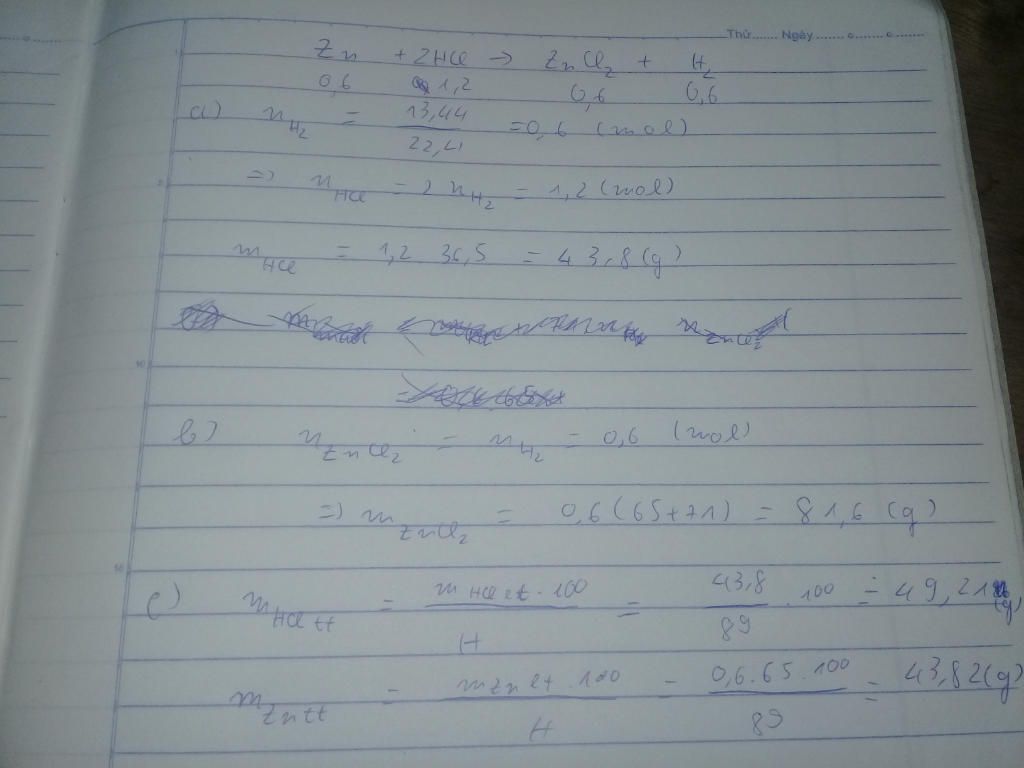 Thứ....... Ngày........o........o........
Zn + 2HCl → ZnCl₂ + H₂
0,6 1,2 0,6 0,6
a) n_H₂ = 13,44 / 22,4 = 0,6 (mol)
=> n_HCl = 2 n_H₂ = 1,2 (mol)
m_HCl = 1,2 . 36,5 = 43,8 (g)
n_ZnCl₂
b) n_ZnCl₂ = n_H₂ = 0,6 (mol)
=> m_ZnCl₂ = 0,6 (65+71) = 81,6 (g)
c) m_HCl tt = m HCl lt . 100 / H = 43,8 / 89 . 100 = 49,21 (g)
m_Zn tt = m Zn lt . 100 / H = 0,6 . 65 . 100 / 89 = 43,82 (g)
5
10
15